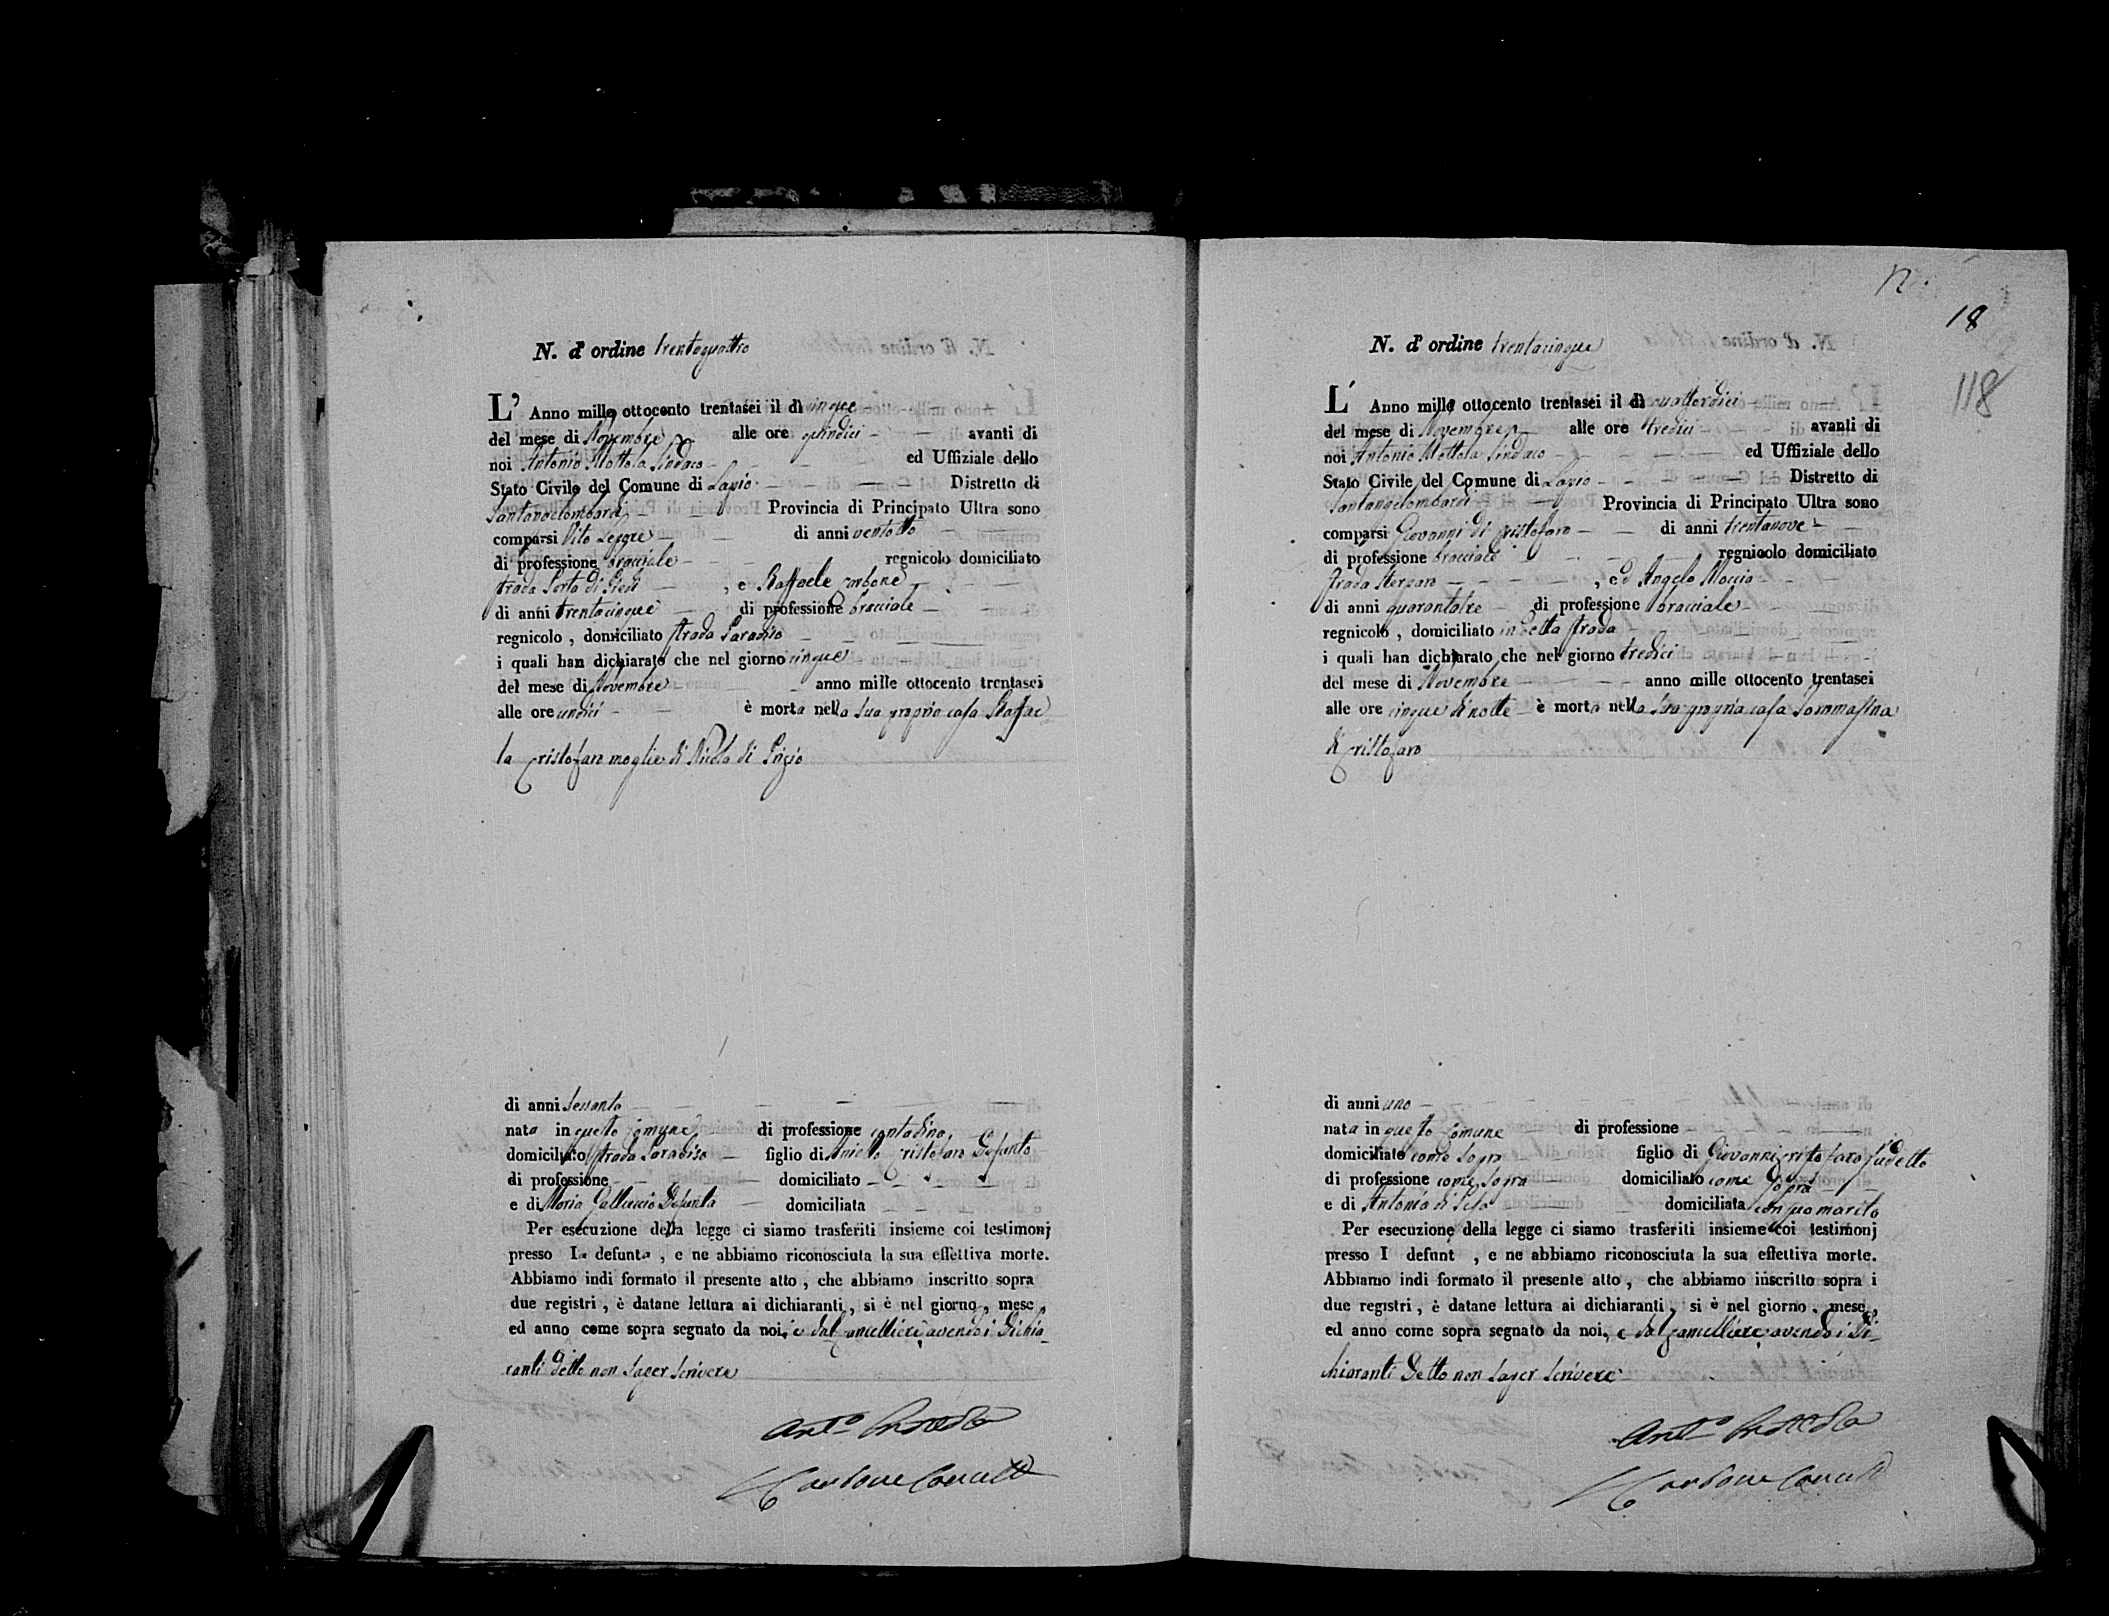 N. d' ordine trentaquattro
L' Anno mille ottocento trentasei il dì cinque
del mese di Novembre alle ore quindici avanti di
noi Antonio Mottola Sindaco ed Uffiziale dello
Stato Civile del Comune di Lapio Distretto di
Santangelombardi Provincia di Principato Ultra sono
comparsi Vito di anni ventotto
di professione bracciale regnicolo domiciliato
strada Porta di Piedi , e Raffaele Carbone
di anni trentacinque di professione bracciale
regnicolo , domiciliato strada Paradiso
i quali han dichiarato che nel giorno cinque
del mese di Novembre anno mille ottocento trentasei
alle ore undici è morta nella sua propria casa Raffae
la Cristofaro moglie di Nicola di Prizio
di anni sessanta
nata in questo Comune di professione contadina,
domiciliato strada Paradiso figlio di Aniello Cristofaro Defunto
di professione domiciliato
e di Maria Galluccio Defunta domiciliata
Per esecuzione della legge ci siamo trasferiti insieme coi testimonj
presso la defunta , e ne abbiamo riconosciuta la sua effettiva morte.
Abbiamo indi formato il presente atto , che abbiamo inscritto sopra
due registri , è datane lettura ai dichiaranti, si è nel giorno, mese,
ed anno come sopra segnato da noi, e dal Cancelliere avendo i Dichia-
ranti detto non saper scrivere
Ant.o Mottola
Carbone Canc
18
118
N. d' ordine trentacinque
L' Anno mille ottocento trentasei il dì quattordici
del mese di Novembre alle ore tredici avanti di
noi Antonio Mottola Sindaco ed Uffiziale dello
Stato Civile del Comune di Lapio Distretto di
Santangelombardi Provincia di Principato Ultra sono
comparsi Giovanni di Cristofaro di anni trentanove
di professione bracciale regnicolo domiciliato
strada , ed Angelo Moccia
di anni quarantatre di professione bracciale
regnicolo , domiciliato in detta strada
i quali han dichiarato che nel giorno tredici
del mese di Novembre anno mille ottocento trentasei
alle ore cinque di notte è morta nella sua propria casa Tommasina
di Cristofaro
di anni uno
nata in questo Comune di professione
domiciliato come sopra figlio di Giovanni Cristofaro sudetto
di professione come sopra domiciliato come sopra
e di Antonia domiciliata con suo marito
Per esecuzione della legge ci siamo trasferiti insieme coi testimonj
presso l defunt , e ne abbiamo riconosciuta la sua effettiva morte.
Abbiamo indi formato il presente atto , che abbiamo inscritto sopra i
due registri , è datane lettura ai dichiaranti, si è nel giorno, mese,
ed anno come sopra segnato da noi, e dal Cancelliere avendo i Di-
chiaranti detto non saper scrivere
Ant.o Mottola
Carbone Canc